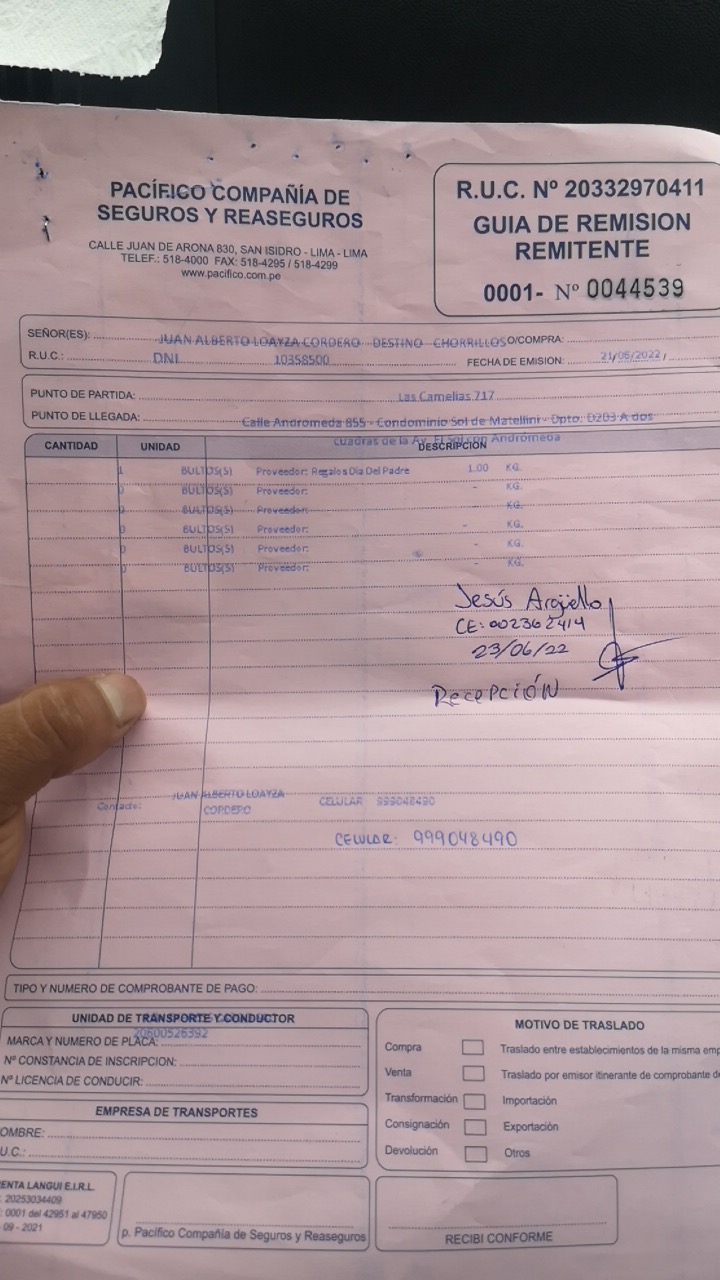 PACÍFICO COMPAÑÍA DE
SEGUROS Y REASEGUROS
CALLE JUAN DE ARONA 830, SAN ISIDRO - LIMA - LIMA
TELEF.: 518-4000 FAX: 518-4295 / 518-4299
www.pacifico.com.pe
R.U.C. Nº 20332970411
GUIA DE REMISION
REMITENTE
0001- Nº 0044539
SEÑOR(ES): JUAN ALBERTO LOAYZA CORDERO DESTINO CHORRILLOS O/COMPRA:
R.U.C.: DNI 10358500 FECHA DE EMISION: 21/06/2022
PUNTO DE PARTIDA: Las Camelias 717
PUNTO DE LLEGADA: Calle Andromeda 855 - Condominio Sol de Matellini - Dpto. D203 A dos
cuadras de la Av. El Sol con Andromeda
CANTIDAD UNIDAD DESCRIPCION
1 BULTOS(S) Proveedor: Regalos Dia Del Padre 1.00 KG.
0 BULTOS(S) Proveedor: - KG.
0 BULTOS(S) Proveedor: - KG.
0 BULTOS(S) Proveedor: - KG.
0 BULTOS(S) Proveedor: - KG.
0 BULTOS(S) Proveedor: - KG.
Jesús Argüello
CE: 002362414
23/06/22
RecePCIÓN
Contacto: JUAN ALBERTO LOAYZA
CORDERO
CELULAR 999048490
CELULAR: 999048490
TIPO Y NUMERO DE COMPROBANTE DE PAGO:
UNIDAD DE TRANSPORTE Y CONDUCTOR
20600526392
MARCA Y NUMERO DE PLACA:
Nº CONSTANCIA DE INSCRIPCION:
Nº LICENCIA DE CONDUCIR:
EMPRESA DE TRANSPORTES
OMBRE:
U.C.:
MOTIVO DE TRASLADO
Compra
Venta
Transformación
Consignación
Devolución
Traslado entre establecimientos de la misma emp
Traslado por emisor itinerante de comprobante de
Importación
Exportación
Otros
ENTA LANGUI E.I.R.L.
: 20253034409
: 0001 del 42951 al 47950
09 - 2021
p. Pacífico Compañía de Seguros y Reaseguros
RECIBI CONFORME